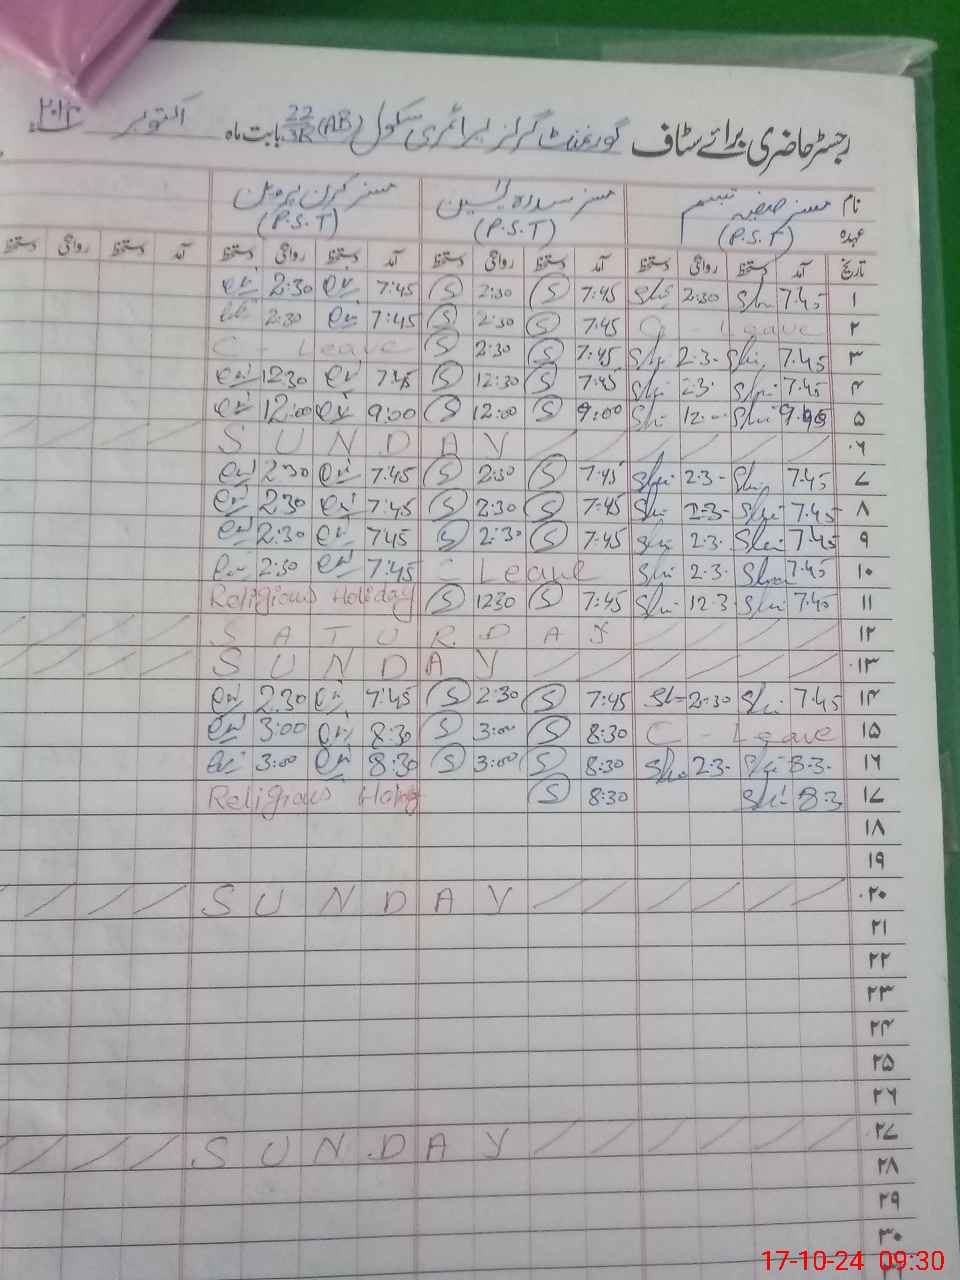 رجسٹر حاضری برائے سٹاف گورنمنٹ گرلز پرائمری سکول 22/3R (AB) بابت ماہ اکتوبر
نام مسز صفیہ تبسم مسز سدرہ یٰسین مسز کرن پروین
عہدہ (P.S.T) (P.S.T) (P.S.T)
تاریخ آمد دستخط روانگی دستخط آمد دستخط روانگی دستخط آمد دستخط روانگی دستخط آمد دستخط روانگی دستخط
۱ 7:45 2:30 7:45 S 2:30 S 7:45 2:30
۲ C - Leave 7:45 S 2:30 S 7:45 2:30
۳ 7:45 2:3- 7:45 S 2:30 S C - Leave
۴ 7:45 2:3- 7:45 S 12:30 S 7:45 12:30
۵ 12:- 9:00 S 12:00 S 9:00 12:00
۶ SUNDAY
۷ 7:45 2:3- 7:45 S 2:30 S 7:45 2:30
۸ 7:45 2:3- 7:45 S 2:30 S 7:45 2:30
۹ 7:45 2:3- 7:45 S 2:30 S 7:45 2:30
۱۰ 7:45 2:3- C Leave 7:45 2:30
۱۱ 7:45 12:3 7:45 S 1230 S Religious Holiday
۱۲ SATURDAY
۱۳ SUNDAY
۱۴ 7:45 2:30 7:45 S 2:30 S 7:45 2:30
۱۵ C - Leave 8:30 S 3:00 S 8:30 3:00
۱۶ 8:3- 2:3- 8:30 S 3:00 S 8:30 3:00
۱۷ 8:3 8:30 S Religious
۱۸
۱۹
۲۰ SUNDAY
۲۱
۲۲
۲۳
۲۴
۲۵
۲۶
۲۷ SUNDAY
۲۸
۲۹
۳۰
17-10-24 09:30